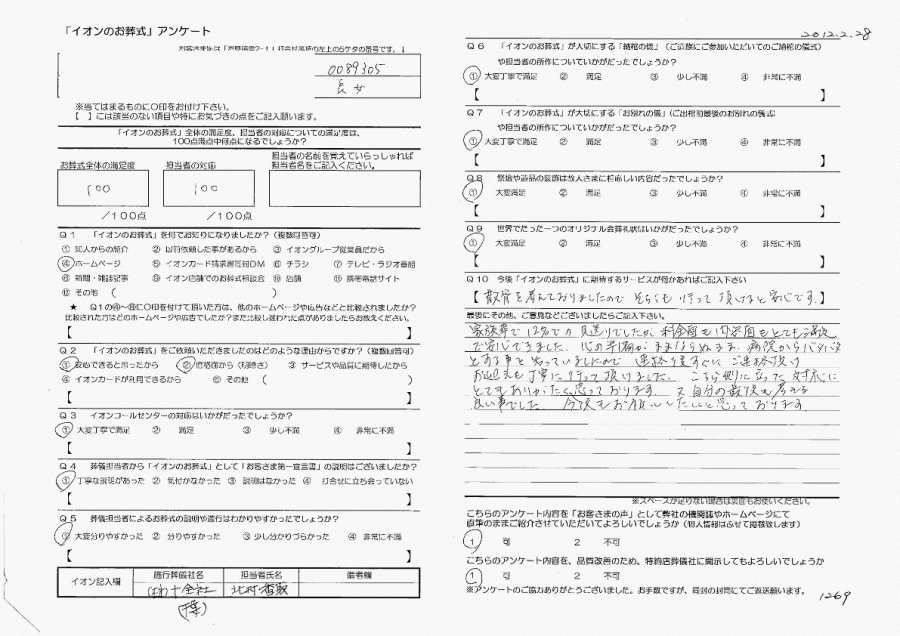 「イオンのお葬式」アンケート
0089305
長女
※当てはまるものに○印をお付け下さい。
【 】には該当のない項目や特にお気づきの点をご記入願います。
「イオンのお葬式」全体の満足度、担当者の対応についての満足度は、
100点満点中何点になるでしょうか？
お葬式全体の満足度
担当者の対応
担当者の名前を覚えていらっしゃれば
担当者名をご記入ください。
100
100
／100点
／100点
Q１ 「イオンのお葬式」を何でお知りになりましたか？（複数回答可）
① 知人からの紹介 ② 以前依頼した事があるから ③ イオングループ従業員だから
④ ホームページ ⑤ イオンカード請求書同封DM ⑥ チラシ ⑦ テレビ・ラジオ番組
⑧ 新聞・雑誌記事 ⑨ イオン店舗でのお葬式相談会 ⑩ 店舗 ⑪ 携帯電話サイト
⑫ その他 （ ）
★ Q１の④～⑧に○印を付けて頂いた方は、他のホームページや広告などと比較されましたか？
比較された方はどのホームページや広告でしたか？また比較し迷われた点がありましたらお教えください。
【 】
Q２ 「イオンのお葬式」をご依頼いただきましたのはどのような理由からですか？（複数回答可）
① 安心できると思ったから ② 価格面から（明瞭さ） ③ サービスや品質に期待したから
④ イオンカードが利用できるから ⑤ その他 （ ）
【 】
Q３ イオンコールセンターの対応はいかがだったでしょうか？
① 大変丁寧で満足 ② 満足 ③ 少し不満 ④ 非常に不満
【 】
Q４ 葬儀担当者から「イオンのお葬式」として「お客さま第一宣言書」の説明はございましたか？
① 丁寧な説明があった ② 気付かなかった ③ 説明はなかった ④ 打合せに立ち会っていない
【 】
Q５ 葬儀担当者によるお葬式の説明や進行はわかりやすかったでしょうか？
① 大変分りやすかった ② 分りやすかった ③ 少し分かりづらかった ④ 非常に不満
【 】
イオン記入欄
施行葬儀社名
担当者氏名
備考欄
2012.2.28
Q６ 「イオンのお葬式」が大切にする「納棺の儀」（ご家族にご参加いただいてのご納棺の儀式）
や担当者の所作についていかがだったでしょうか？
① 大変丁寧で満足 ② 満足 ③ 少し不満 ④ 非常に不満
【 】
Q７ 「イオンのお葬式」が大切にする「お別れの儀」（ご出棺前最後のお別れの儀式）
や担当者の所作についていかがだったでしょうか？
① 大変丁寧で満足 ② 満足 ③ 少し不満 ④ 非常に不満
【 】
Q８ 祭壇や造品の装飾は故人さまに相応しい内容だったでしょうか？
① 大変満足 ② 満足 ③ 少し不満 ④ 非常に不満
【 】
Q９ 世界でたった一つのオリジナル会葬礼状はいかがだったでしょうか？
① 大変満足 ② 満足 ③ 少し不満 ④ 非常に不満
【 】
Q10 今後「イオンのお葬式」に期待するサービスが何かあればご記入下さい
【 散骨を考えておりましたので そちらも 行って 頂けると 安心です 】
最後にその他、ご意見などございましたらご記入下さい。
家族葬で 12名での 見送りでしたが 料金面も 内容面も とても満足
できました 心の準備がままならぬまま 病院からバタバタ
とする事を知っていましたので 連絡後すぐに ご連絡頂け
お迎えも 丁寧に 行って頂けました。
とてもありがたく思っております 又 自分の最後も考える
良い事でした 今後もお願いしたいと思っております
※スペースが足りない場合は裏面もお使いください。
こちらのアンケート内容を「お客さまの声」として弊社の機関誌やホームページにて
直筆のままご紹介させていただいてよろしいでしょうか（個人情報はふせて掲載致します）
1 可 2 不可
こちらのアンケート内容を、品質改善のため、特約店葬儀社に開示してもよろしいでしょうか
1 可 2 不可
※アンケートのご協力ありがとうございました。お手数ですが、同封の封筒にてご返送願います。
1269